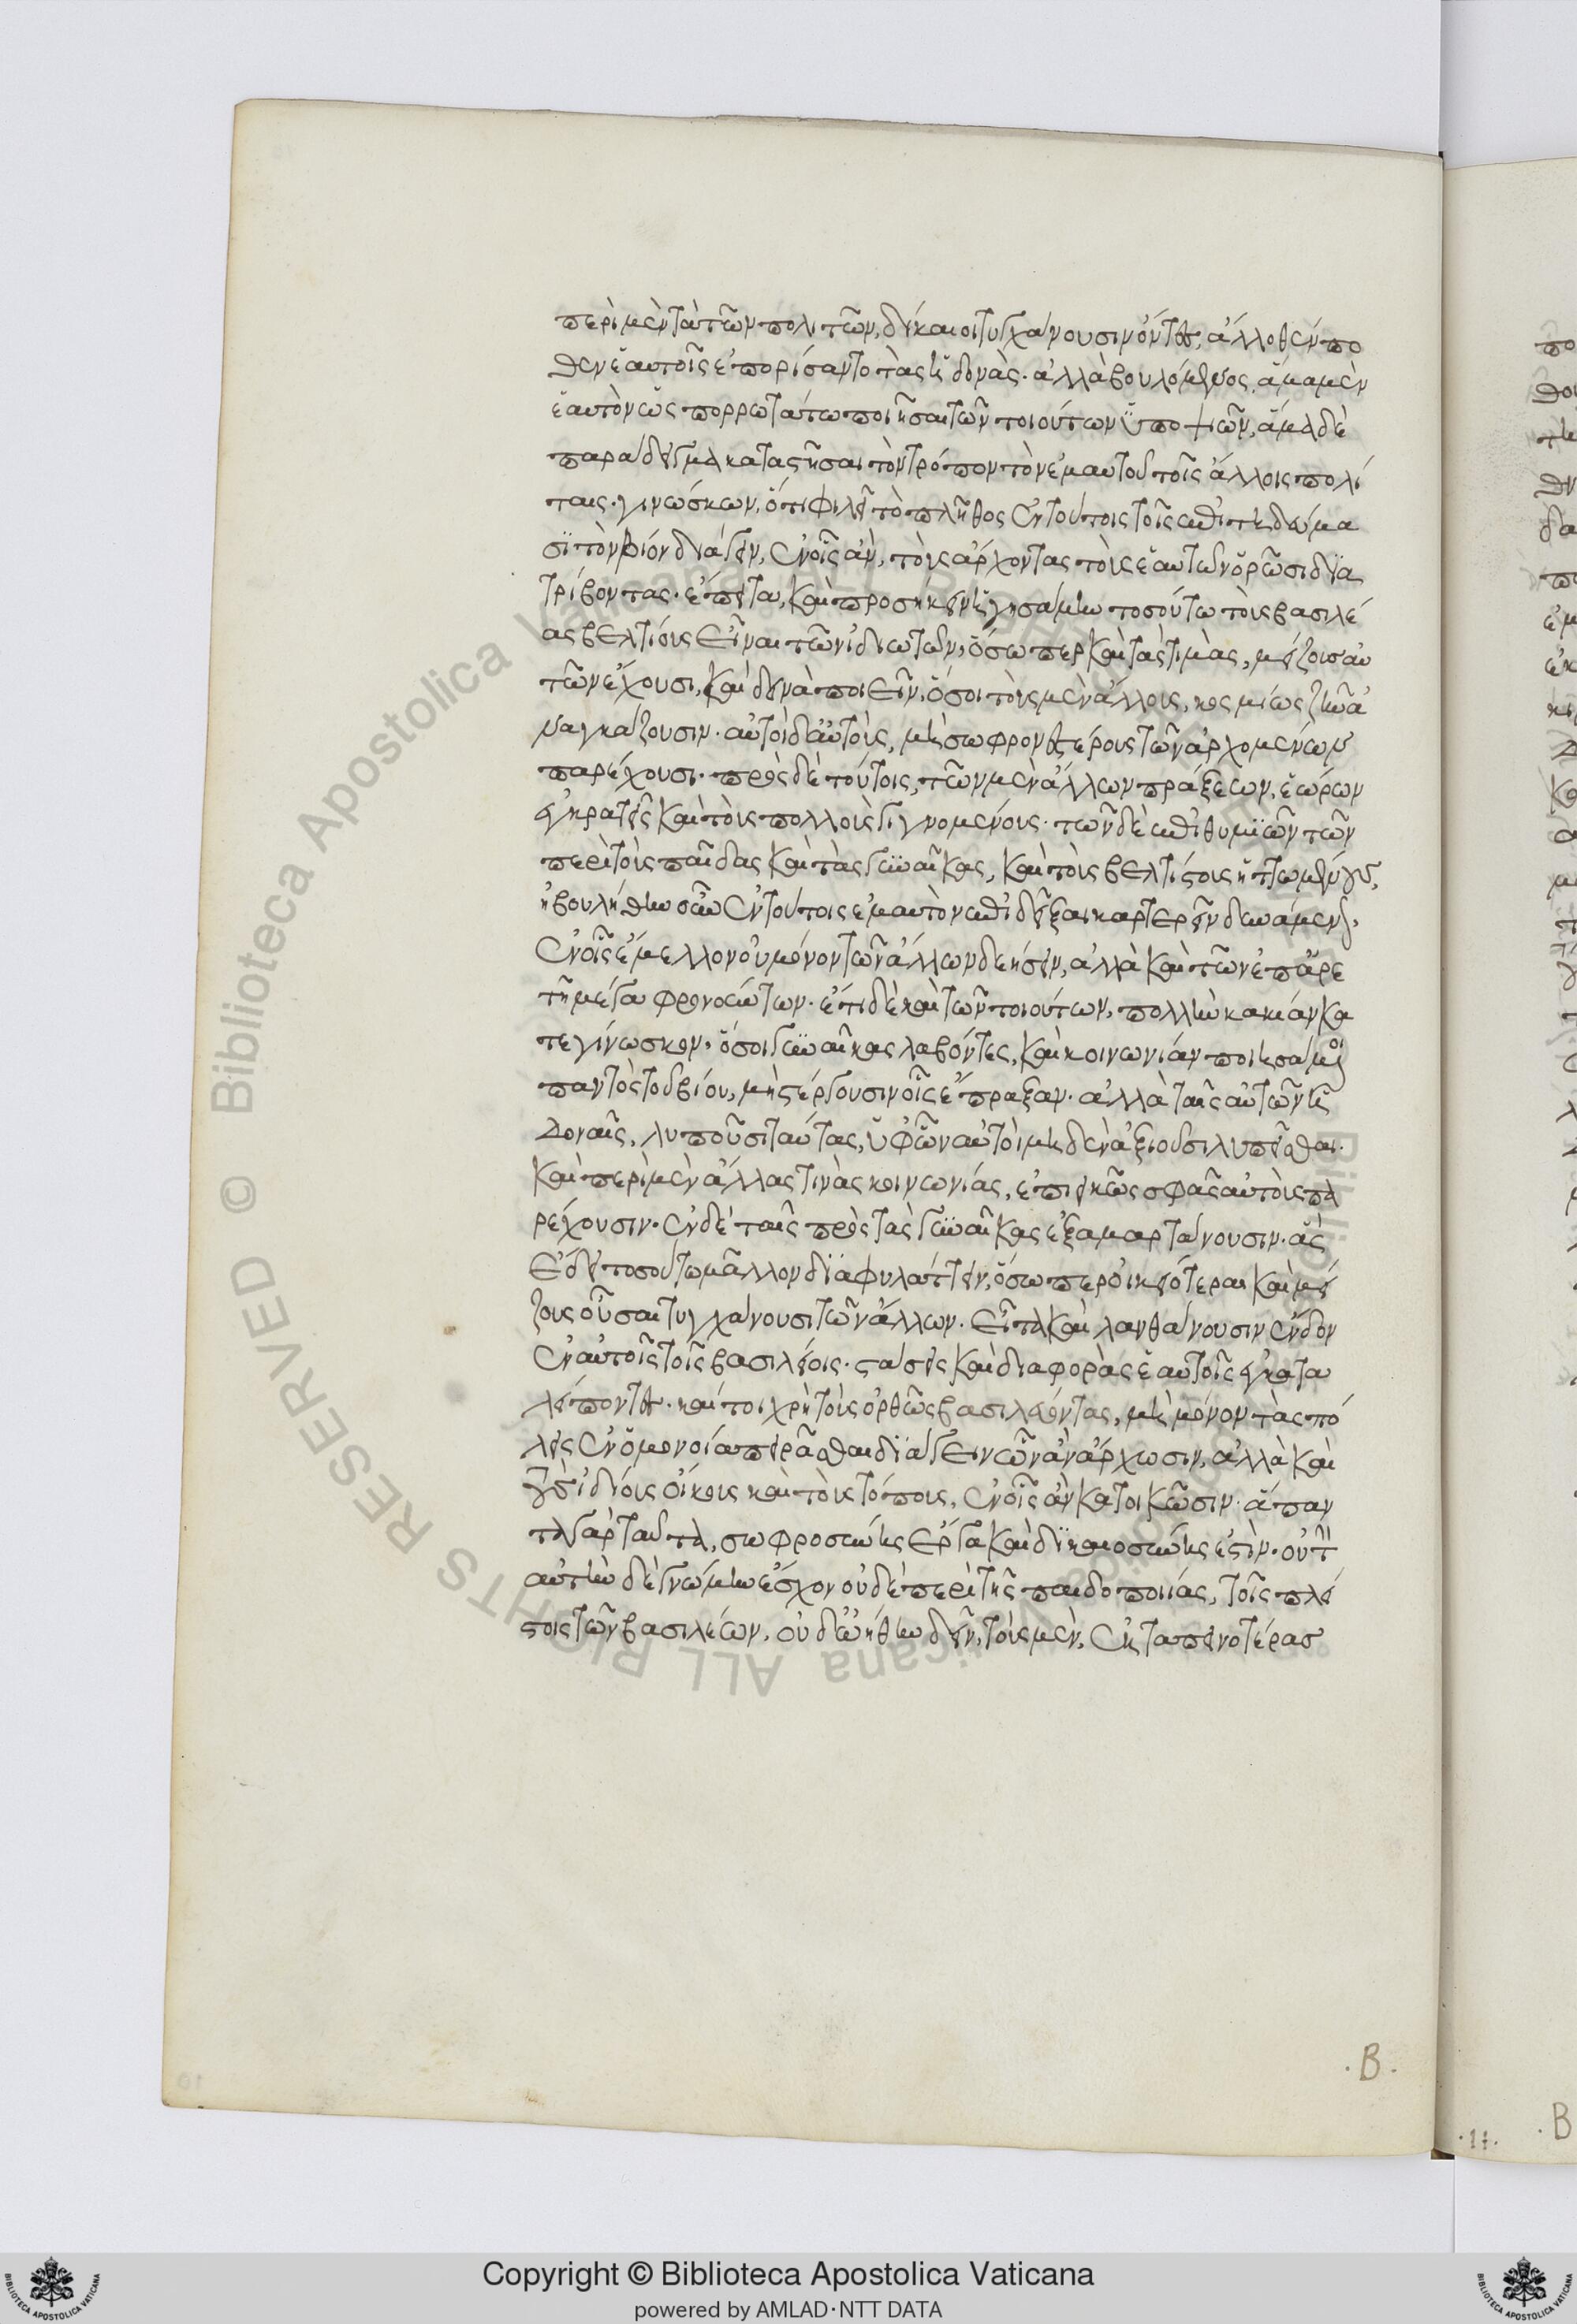 περὶ μὲν τὰ τῶν πολιτῶν, δίκαιοι τυγχάνουσιν ὄντες, ἄλλοθέν πο
θεν ἑαυτοῖς ἐπορίσαντο τὰς ἡδονάς· ἀλλὰ βουλόμενος, ἅμα μὲν
ἑαυτὸν ὡς πορρωτάτω ποιῆσαι τῶν τοιούτων ὑποψιῶν, ἅμα δὲ
παράδειγμα καταστῆσαι τὸν τρόπον τὸν ἐμαυτοῦ τοῖς ἄλλοις πολί
ταις· γινώσκων, ὅτι φιλεῖ τὸ πλῆθος ἐν τούτοις τοῖς ἐπιτηδεύμα
σϊ τὸν βίον διάγειν, ἐν οἷς ἂν, τοὺς ἄρχοντας τοὺς ἑαυτῶν ὁρῶσι δϊα
τρίβοντας· ἔπειτα, καὶ προσήκειν ἡγησάμην τοσούτω τοὺς βασιλέ
ας βελτίους εἶναι τῶν ἰδιωτῶν, ὅσω περ καὶ τὰς τιμὰς, μείζους αὐ
τῶν ἔχουσι, καὶ δεινὰ ποιεῖν, ὅσοι τοὺς μὲν ἄλλους, κοσμίως ζῆν ἀ
ναγκάζουσιν· αὐτοὶ δ' αὑτοὺς, μὴ σωφρονεστέρους τῶν ἀρχομένων
παρέχουσι· πρὸς δὲ τούτοις, τῶν μὲν ἄλλων πράξεων, ἑώρων
ἐγκρατεῖς καὶ τοὺς πολλοὺς γιγνομένους· τῶν δὲ ἐπιθυμϊῶν τῶν
περὶ τοὺς παῖδας καὶ τὰς γυναῖκας, καὶ τοὺς βελτίστους ἡττωμένους,
ἠβουλήθην οὖν ἐν τούτοις ἐμαυτὸν ἐπιδεῖξαι καρτερεῖν δυνάμενον,
ἐν οἷς ἔμελλον οὐ μόνον τῶν ἄλλων διοίσειν, ἀλλὰ καὶ τῶν ἐπ' ἀρε
τῆ μέγα φρονούντων· ἔτι δὲ καὶ τῶν τοιούτων, πολλὴν κακίαν κα
τεγίνωσκον, ὅσοι γυναῖκας λαβόντες, καὶ κοινωνίαν ποιησάμενοι
παντὸς τοῦ βίου, μὴ στέργουσιν οἷς ἔπραξαν· ἀλλὰ ταῖς αὑτῶν ἡ
δοναῖς, λυποῦσι ταύτας, ὑφ' ὧν αὐτοὶ μηδὲν ἀξιοῦσι λυπεῖσθαι·
καὶ περὶ μὲν ἄλλας τινὰς κοινωνίας, ἐπιεικῶς σφᾶς αὐτοὺς πα
ρέχουσιν· ἐν δὲ ταῖς πρὸς τὰς γυναῖκας ἐξαμαρτάνουσιν· ἃς
ἔδει τοσούτω μᾶλλον δϊαφυλάττειν, ὅσω περ οἰκειότεραι καὶ μεί
ζους οὖσαι τυγχάνουσι τῶν ἄλλων· εἶτα καὶ λανθάνουσιν ἔνδον
ἐν αὐτοῖς τοῖς βασιλείοις· στάσεις καὶ διαφορὰς ἑαυτοῖς ἐγκατα
λείποντες· καίτοι χρὴ τοὺς ὀρθῶς βασιλεύοντας, μὴ μόνον τὰς πό
λεις ἐν ὁμονοία πειρᾶσθαι διάγειν ὧν ἂν ἄρχωσιν, ἀλλὰ καὶ
τοὺς ἰδίους οἴκους καὶ τοὺς τόπους, ἐν οἷς ἂν κατοικῶσιν· ἅπαν
τα γὰρ ταῦτα, σωφροσύνης ἔργα καὶ δϊκαιοσύνης ἐστίν· οὐ τὴν
αὐτὴν δὲ γνώμην ἔσχον οὐδὲ περὶ τῆς παιδοποιίας, τοῖς πλεί
στοις τῶν βασιλέων, οὐδ' ὠήθην δεῖν, τοὺς μὲν, ἐκ ταπεινοτέρας
.B.
πο
.11.
.B
Copyright © Biblioteca Apostolica Vaticana
powered by AMLAD·NTT DATA
© Biblioteca Apostolica Vaticana ALL RIGHTS RESERVED